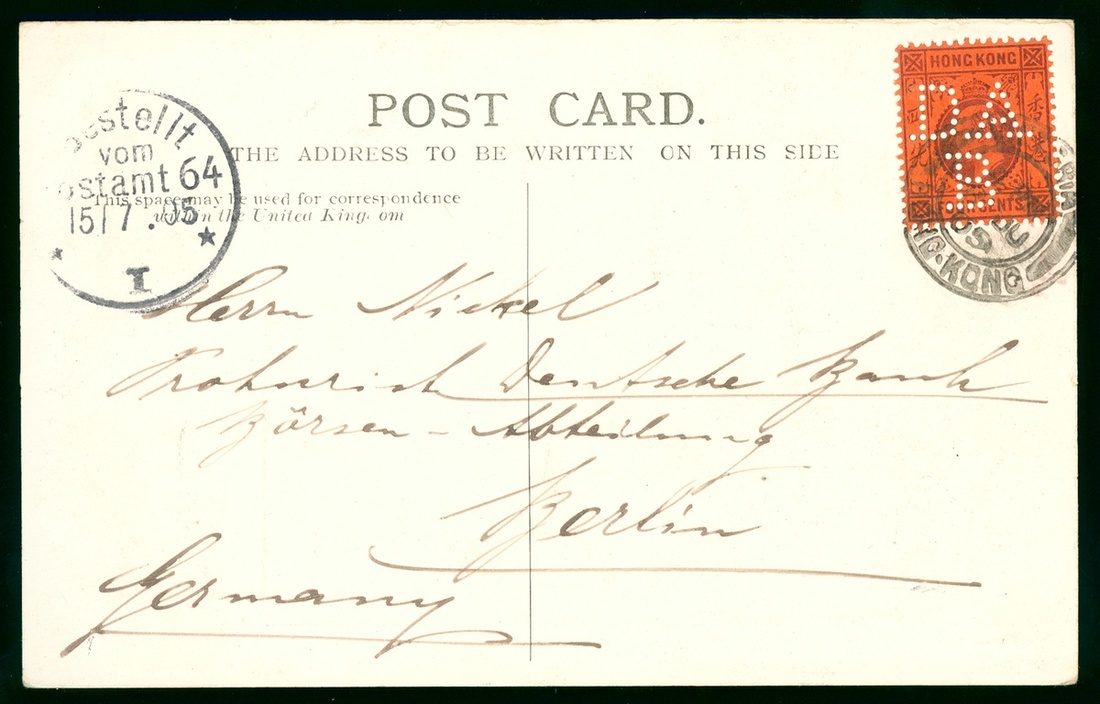 HONG KONG
D.A.
B
CENTS
POST CARD.
THE ADDRESS TO BE WRITTEN ON THIS SIDE
This space may be used for correspondence
within the United King om
Bestellt
vom
ostamt 64
15/7 .05
I
G-KONG
Herrn Nickel
Deutsche Bank
Börsen - Abteilung
Berlin
Germany